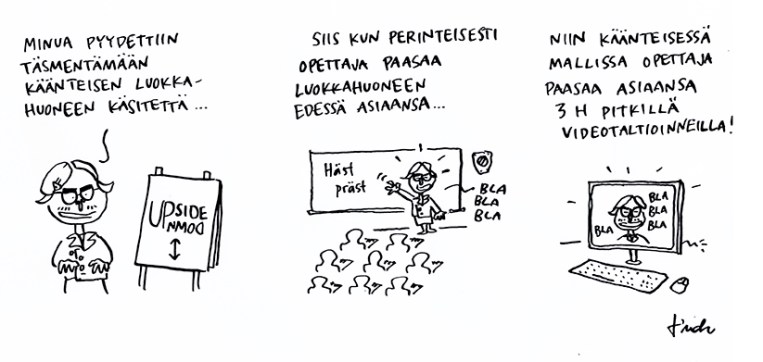 MINUA PYYDETTIIN
TÄSMENTÄMÄÄN
KÄÄNTEISEN LUOKKA-
HUONEEN KÄSITETTÄ...
UPSIDE
DOWN
SIIS KUN PERINTEISESTI
OPETTAJA PAASAA
LUOKKAHUONEEN
EDESSÄ ASIAANSA...
Häst
präst
BLA
BLA
BLA
NIIN KÄÄNTEISESSÄ
MALLISSA OPETTAJA
PAASAA ASIAANSA
3 H PITKILLÄ
VIDEOTALTIOINNEILLA!
BLA
BLA
BLA
BLA